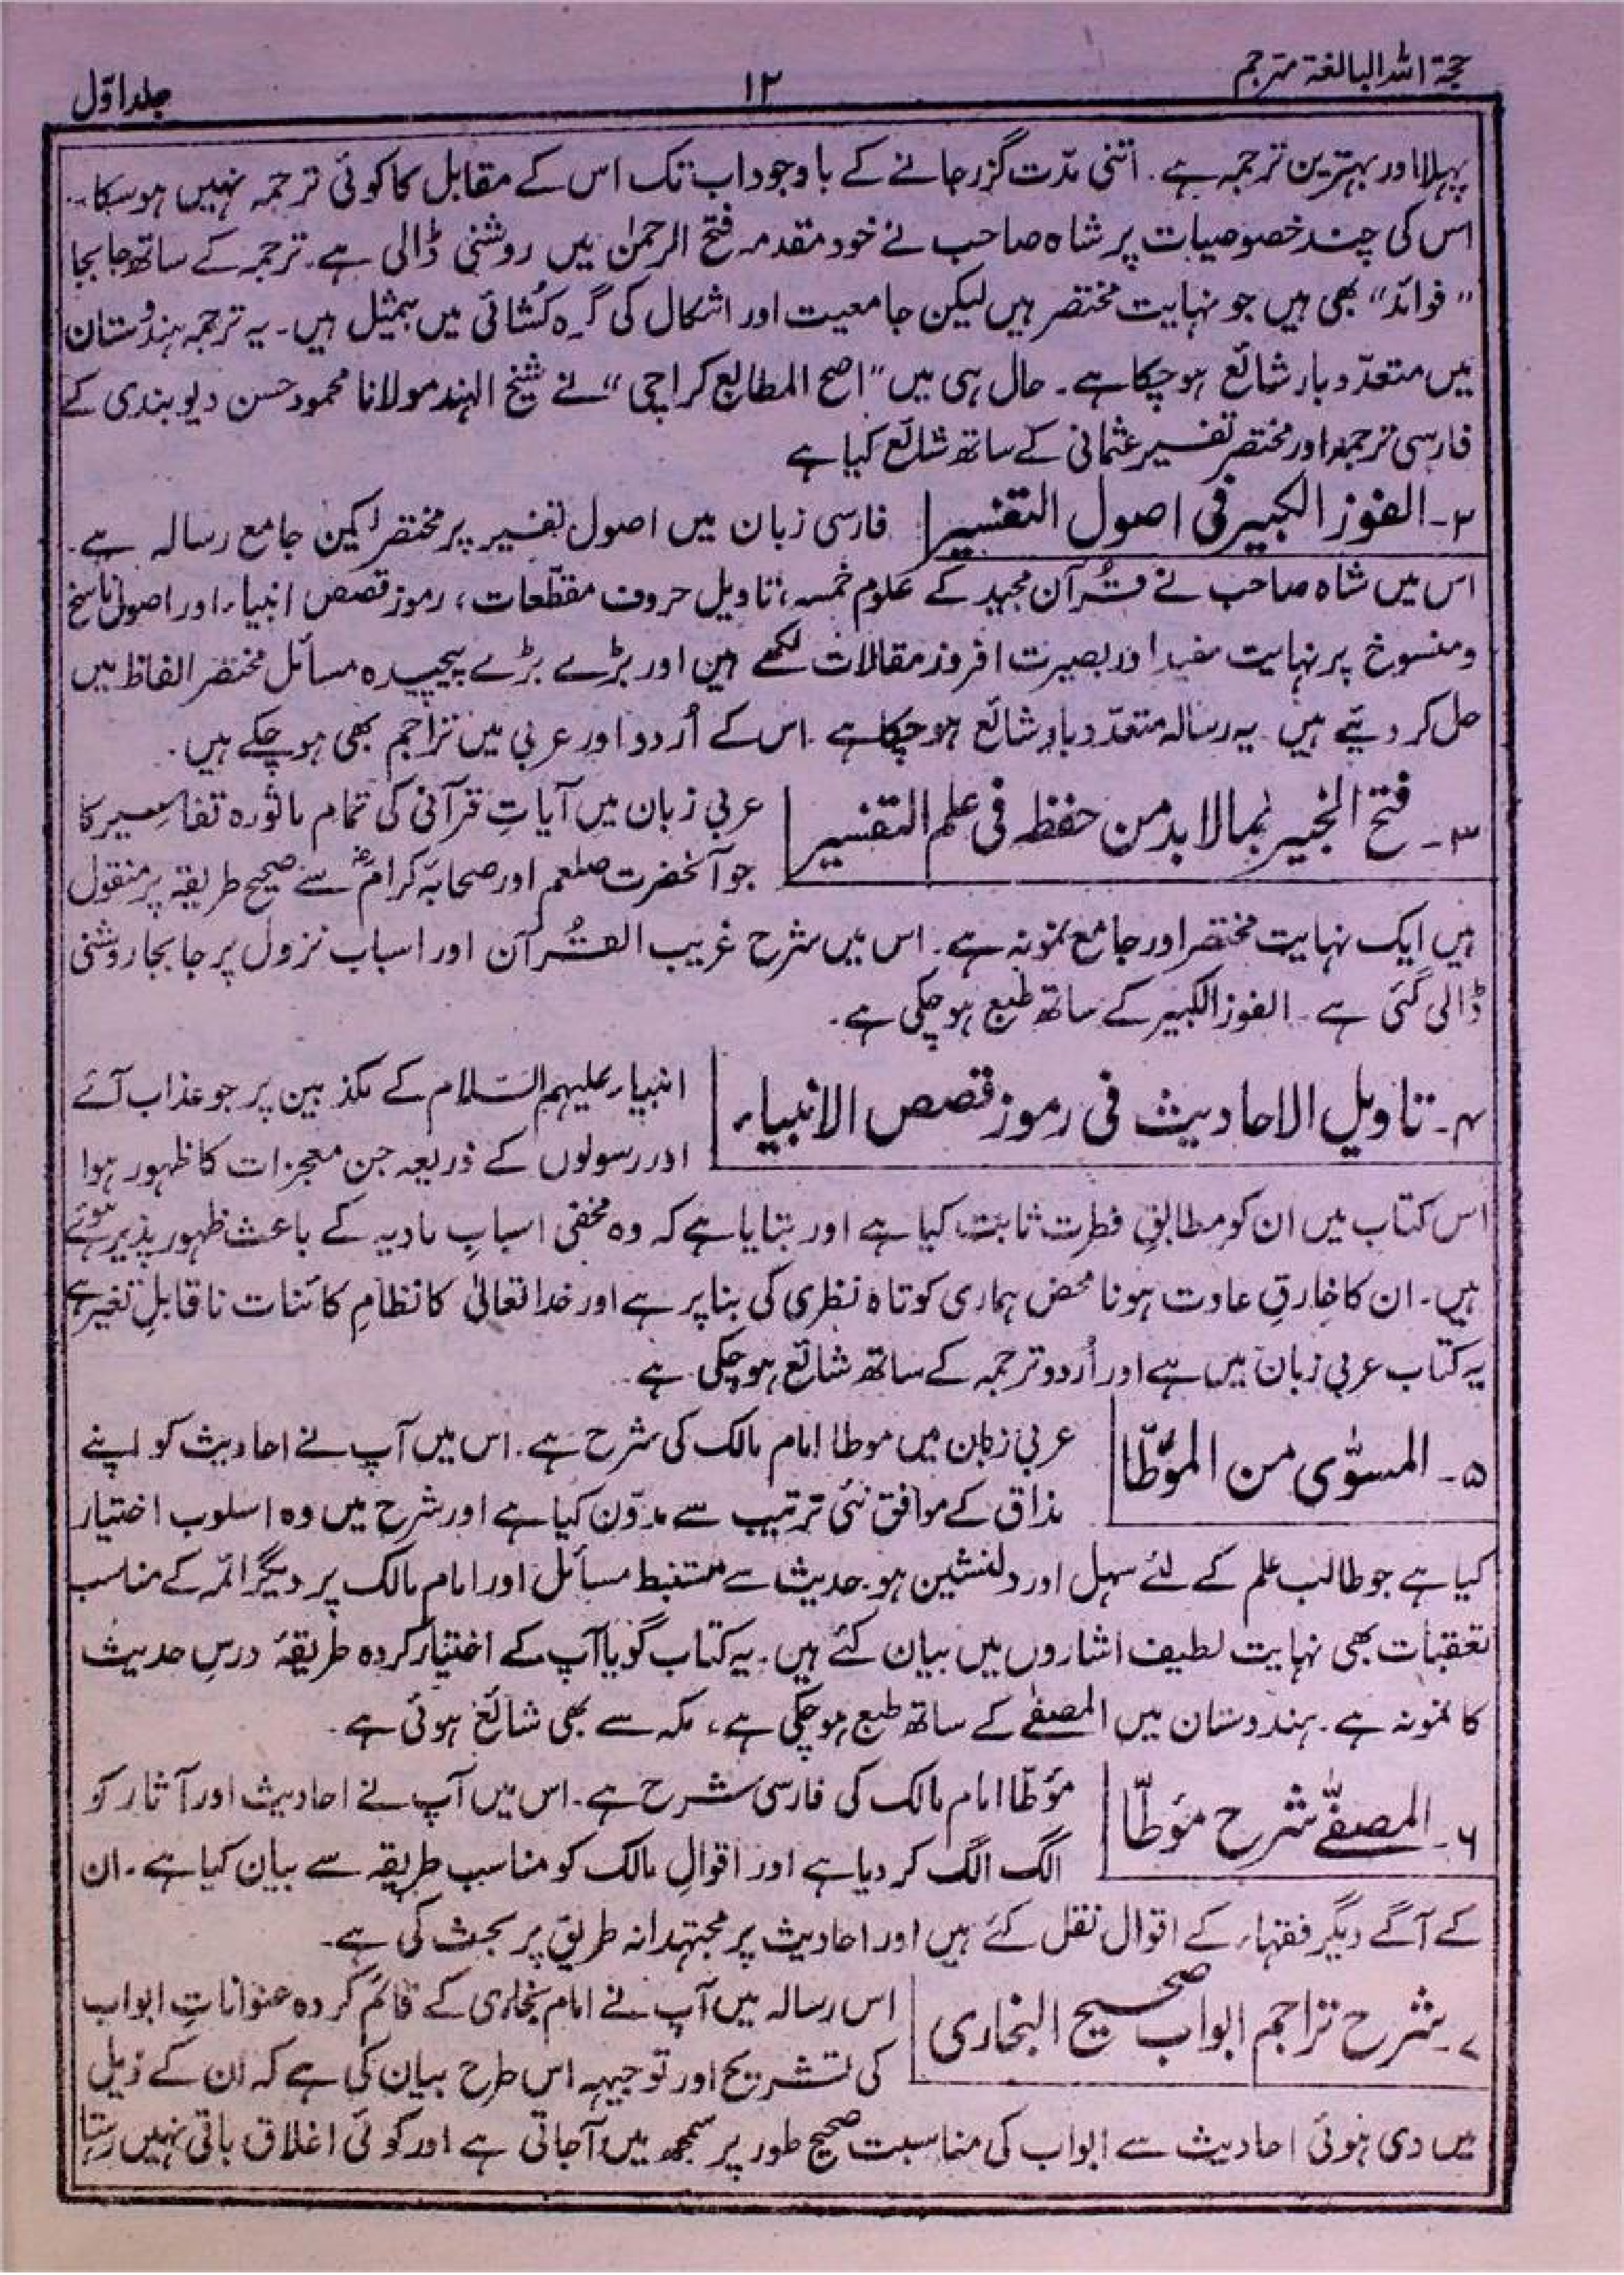 حجۃ اللہ البالغۃ مترجم
۱۲
جلد اوّل
پہلا اور بہترین ترجمہ ہے۔ اتنی مدّت گزر جانے کے باوجود اب تک اس کے مقابل کا کوئی ترجمہ نہیں ہو سکا۔
اس کی چند خصوصیات پر شاہ صاحب نے خود مقدمہ فتح الرحمٰن میں روشنی ڈالی ہے۔ ترجمہ کے ساتھ جا بجا
”فوائد“ بھی ہیں جو نہایت مختصر ہیں لیکن جامعیت اور اشکال کی گرہ کشائی میں بیمثیل ہیں۔ یہ ترجمہ ہندوستان
میں متعدّد بار شائع ہو چکا ہے۔ حال ہی میں ”اصح المطابع کراچی“ نے شیخ الہند مولانا محمود حسن دیوبندی کے
فارسی ترجمہ اور مختصر تفسیر عثمانی کے ساتھ شائع کیا ہے
۲۔ الفوز الکبیر فی اصول التفسیر فارسی زبان میں اصول تفسیر پر مختصر لیکن جامع رسالہ ہے۔
اس میں شاہ صاحب نے قُرآن مجید کے علوم خمسہ، تاویل حروف مقطّعات، رموز قصص انبیاء اور اصول ناسخ
و منسوخ پر نہایت مفید اور بصیرت افروز مقالات لکھے ہیں اور بڑے بڑے پیچیدہ مسائل مختصر الفاظ میں
حل کر دیئے ہیں یہ رسالہ متعدّد بار شائع ہو چکا ہے۔ اس کے اُردو اور عربی میں تراجم بھی ہو چکے ہیں۔
۳۔ فتح الخبیر بمالا بد من حفظہ فی علم التفسیر عربی زبان میں آیاتِ قرآنی کی تمام ماثورہ تفاسیر کا
جو آنحضرت صلعم اور صحابہ کرامؓ سے صحیح طریقہ پر منقول
ہیں ایک نہایت مختصر اور جامع نمونہ ہے۔ اس میں شرح غریب القُرآن اور اسباب نزول پر جا بجا روشنی
ڈالی گئی ہے۔ الفوز الکبیر کے ساتھ طبع ہو چکی ہے۔
۴۔ تاویل الاحادیث فی رموز قصص الانبیاء انبیاء علیہم السّلام کے مکذبین پر جو عذاب آئے
اور رسولوں کے ذریعہ جن معجزات کا ظہور ہوا
اس کتاب میں ان کو مطابقِ فطرت ثابت کیا ہے اور بتایا ہے کہ وہ مخفی اسبابِ مادیہ کے باعث ظہور پذیر ہوئے
ہیں۔ ان کا خارقِ عادت ہونا محض ہماری کوتاہ نظری کی بنا پر ہے اور خدا تعالیٰ کا نظامِ کائنات ناقابلِ تغیر ہے
یہ کتاب عربی زبان میں ہے اور اُردو ترجمہ کے ساتھ شائع ہو چکی ہے۔
۵۔ المسوّٰی من المؤطّا عربی زبان میں موطا امام مالک کی شرح ہے۔ اس میں آپ نے احادیث کو اپنے
مذاق کے موافق نئی ترتیب سے مدوّن کیا ہے اور شرح میں وہ اسلوب اختیار
کیا ہے جو طالب علم کے لئے سہل اور دلنشین ہو۔ حدیث سے مستنبط مسائل اور امام مالک پر دیگر ائمہ کے مناسب
تعقبات بھی نہایت لطیف اشاروں میں بیان کئے ہیں۔ یہ کتاب گویا آپ کے اختیار کردہ طریقۂ درسِ حدیث
کا نمونہ ہے۔ ہندوستان میں المصفٰے کے ساتھ طبع ہو چکی ہے، مکہ سے بھی شائع ہوئی ہے۔
۶۔ المصفّٰے شرح مؤطّا مؤطّا امام مالک کی فارسی شرح ہے۔ اس میں آپ نے احادیث اور آثار کو
الگ الگ کر دیا ہے اور اقوالِ مالک کو مناسب طریقہ سے بیان کیا ہے۔ ان
کے آگے دیگر فقہاء کے اقوال نقل کئے ہیں اور احادیث پر مجتہدانہ طریق پر بحث کی ہے۔
۷۔ شرح تراجم ابواب صحیح البخاری اس رسالہ میں آپ نے امام بخاری کے قائم کردہ عنواناتِ ابواب
کی تشریح اور توجیہہ اس طرح بیان کی ہے کہ ان کے ذیل
میں دی ہوئی احادیث سے ابواب کی مناسبت صحیح طور پر سمجھ میں آجاتی ہے اور کوئی اغلاق باقی نہیں رہتا